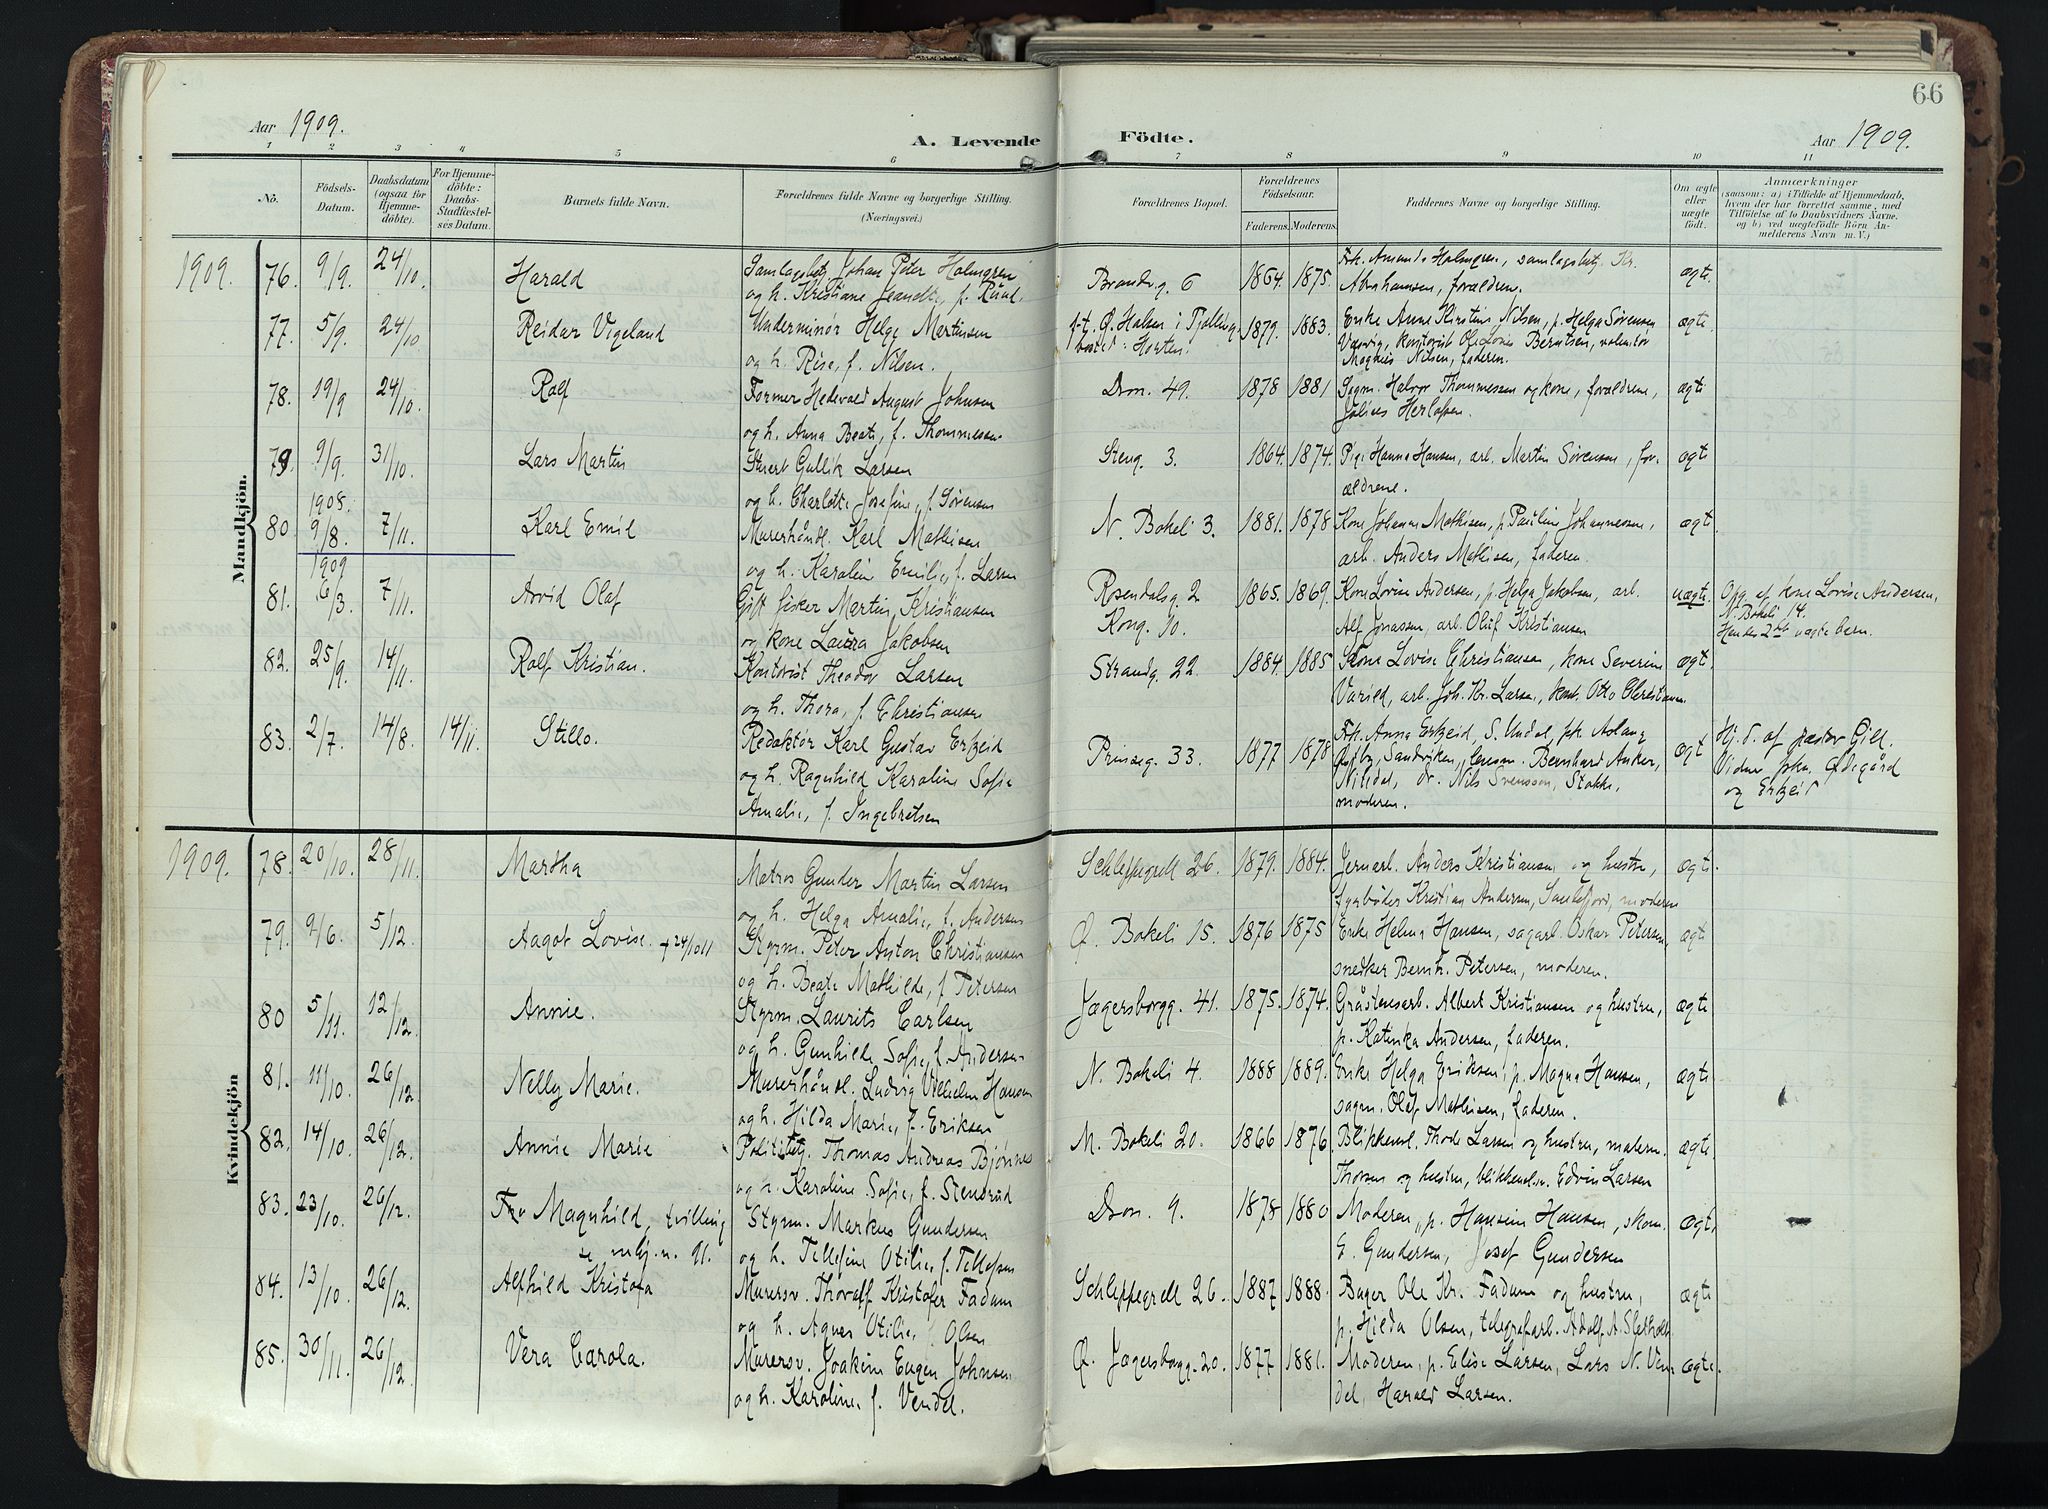 66
Aar 1909.
A. Levende Födte.
Aar 1909.
1 2 3 4 5 6 7 8 9 10 11
No.
Födsels-Datum.
Daabsdatum (ogsaa for Hjemme-döbte).
For Hjemme-döbte: Daabs-Stadfæstel-ses Datum.
Barnets fulde Navn.
Forældrenes fulde Navne og borgerlige Stilling. (Næringsvei.)
Forældrenes Bopæl.
Forældrenes Födselsaar.
Faderens. Moderens.
Faddernes Navne og borgerlige Stilling.
Om ægte eller uægte födt.
Anmærkninger
(saasom: a) i Tilfælde af Hjemmedaab, hvem der har forrettet samme, med Tilföielse af to Daabsvidners Navne. og b) ved uægtefödte Börn An-melderens Navn m. V.)
Mandkjön.
1909. 76. 9/9. 24/10. Harald
Samlagsbetj. Johan Peter Holmgren
og h. Kristiane Jeandt, f. Ruud.
Brandv.g. 6 1864. 1875.
Frk. Amanda Holmgren, samlagsbetj. Kr.
Abrahamsen, forældrene. ægte
77. 5/9. 24/10 Reidar Vigeland
Underminør Helge Martinsen
og h. Rise, f. Nilsen.
f.t. Ø. Halsen i Tjølling, bosat: Horten. 1879. 1883.
Enke Anne Kirstine Nilsen, p. Helga Sørensen
kontorist Ole Berntsen, volentør
Magnus Nilsen, faderen. ægte.
78. 19/9 24/10. Rolf
Former Hedevald August Johnsen
og h. Anna Beate, f. Thommessen.
Dron. 49. 1878 1881
Sagm. Halvor Thommessen og kone, forældrene,
Julius Herlofsen. ægte
79. 9/9. 31/10. Lars Martin
Stuert Gullik Larsen
og h. Charlotte Josefine, f. Sørensen
Steng. 3. 1864. 1874.
Pige Hanna Hansen, arb. Martin Sørensen, for-
ældrene. ægte
1908.
80. 9/8. 7/11. Karl Emil
Murerhåndl. Karl Mathisen
og h. Karolin Emilie, f. Larsen
N. Bokeli 3. 1881. 1878
Kone Johanne Mathisen, p. Pauline Johannessen,
arb. Anders Mathisen, faderen. ægte
1909
81. 6/3. 7/11. Arvid Olaf
Gift fisker Martin Kristiansen
og kone Laura Jakobsen
Rosendalsg. 2
Kong. 10. 1865. 1869.
Kone Lovise Andersen, p. Helga Jakobsen, arb.
Alf Jonassen, arb. Oluf Kristiansen uægte.
Opg. af kone Lovise Andersen,
N. Bokeli 14.
Hendes 2det uægte barn.
82. 25/9. 14/11. Rolf Kristian.
Kontorist Theodor Larsen
og h. Thora, f. Christiansen
Strandg. 22 1884. 1885
Kone Lovise Christiansen, kone Severine
Varild, arb. Joh. Kr. Larsen, kont. Otto Christiansen ægte
83. 2/7. 14/8. 14/11. Stillo.
Redaktör Karl Gustav Erkeid
og h. Ragnhild Karoline Sofie
Amalie, f. Ingebretsen
Prinseg. 33. 1877 1878
Frk. Anna Erkeid, S. Undal, frk. Aslaug
Sandviken, Bernhard Anker,
Nitedal, dr. Nils Svensson, Stokke,
moderen. ægte
Hj. d. af pastor Gill.
Vidner frkn. Ødegård
og Erkeid
Kvindekjön
1909. 78. 20/10. 28/11. Martha
Matros Gunder Martin Larsen
og h. Helga Amalie, f. Andersen
Schleppegrell 26. 1879. 1884.
Jernarb. Anders Kristiansen og hustru,
fyrbøder Kristian Andersen, Sandefjord, moderen ægte.
79. 9/6. 5/12. Aagot Lovise. † 24/10 11
Styrm. Peter Anton Christiansen
og h. Beate Mathilde, f. Petersen
Ø. Bokeli 15. 1876 1875
Enke Helma Hansen, sagarb. Oskar Petersen,
snedker Bernh. Petersen, moderen. ægte
80 5/11. 12/12. Annie.
Styrm. Laurits Carlsen
og h. Gunhilde Sofie, f. Andersen
Jægersborgg. 41. 1875. 1874.
Gråstensarb. Albert Kristiansen og hustru,
p. Katinka Andersen, faderen. ægte
81. 11/10. 26/12. Nelly Marie.
Murerhåndl. Ludvig Vilhelm Hansen
og h. Hilda Marie, f. Eriksen
N. Bokeli 4. 1888 1889.
Enke Helga Eriksen, p. Magna Hansen,
sagm. Olaf Mathisen, faderen. ægte
82. 14/10. 26/12. Annie Marie
Politibtj. Thomas Andreas Bjönnes
og h. Karoline Sofie, f. Stensrud
M. Bokeli 20. 1866 1876.
Blikkensl. Thode Larsen og hustru, matern.
Thorsen og hustru, blikkensl.sv. Edvin Larsen ægte.
83. 23/10. 26/12. Magnhild, tvilling
se mkj. n. 91.
Styrm. Markus Gundersen
og h. Tellefine Otilie, f. Tellefsen
Dron. 9. 1878 1880
Moderen, p. Hansine Hansen, skom.
G. Gundersen, Josef Gundersen ægte.
84. 13/10. 26/12. Alfhild Kristofa
Murersv. Thoralf Kristofer Fadum
og h. Agnes Otilie, f. Olsen
Schleppegrell 26. 1887 1888.
Bager Ole Kr. Fadum og hustru,
p. Hilda Olsen, telegrafarb. Adolf A. Sletholt ægte
85. 30/11. 26/12. Vera Carola.
Murersv. Joakim Eugen Johnsen
og h. Karoline, f. Vendel.
Ø. Jægersborgg. 20. 1877 1881.
Moderen, p. Elise Larsen, Lars N. Ven-
del, Harald Larsen. ægte